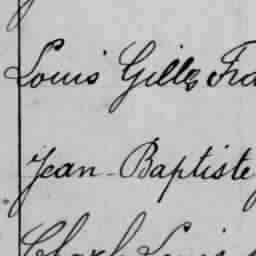 Louis Gilles Fra
Jean-Baptiste
Louis